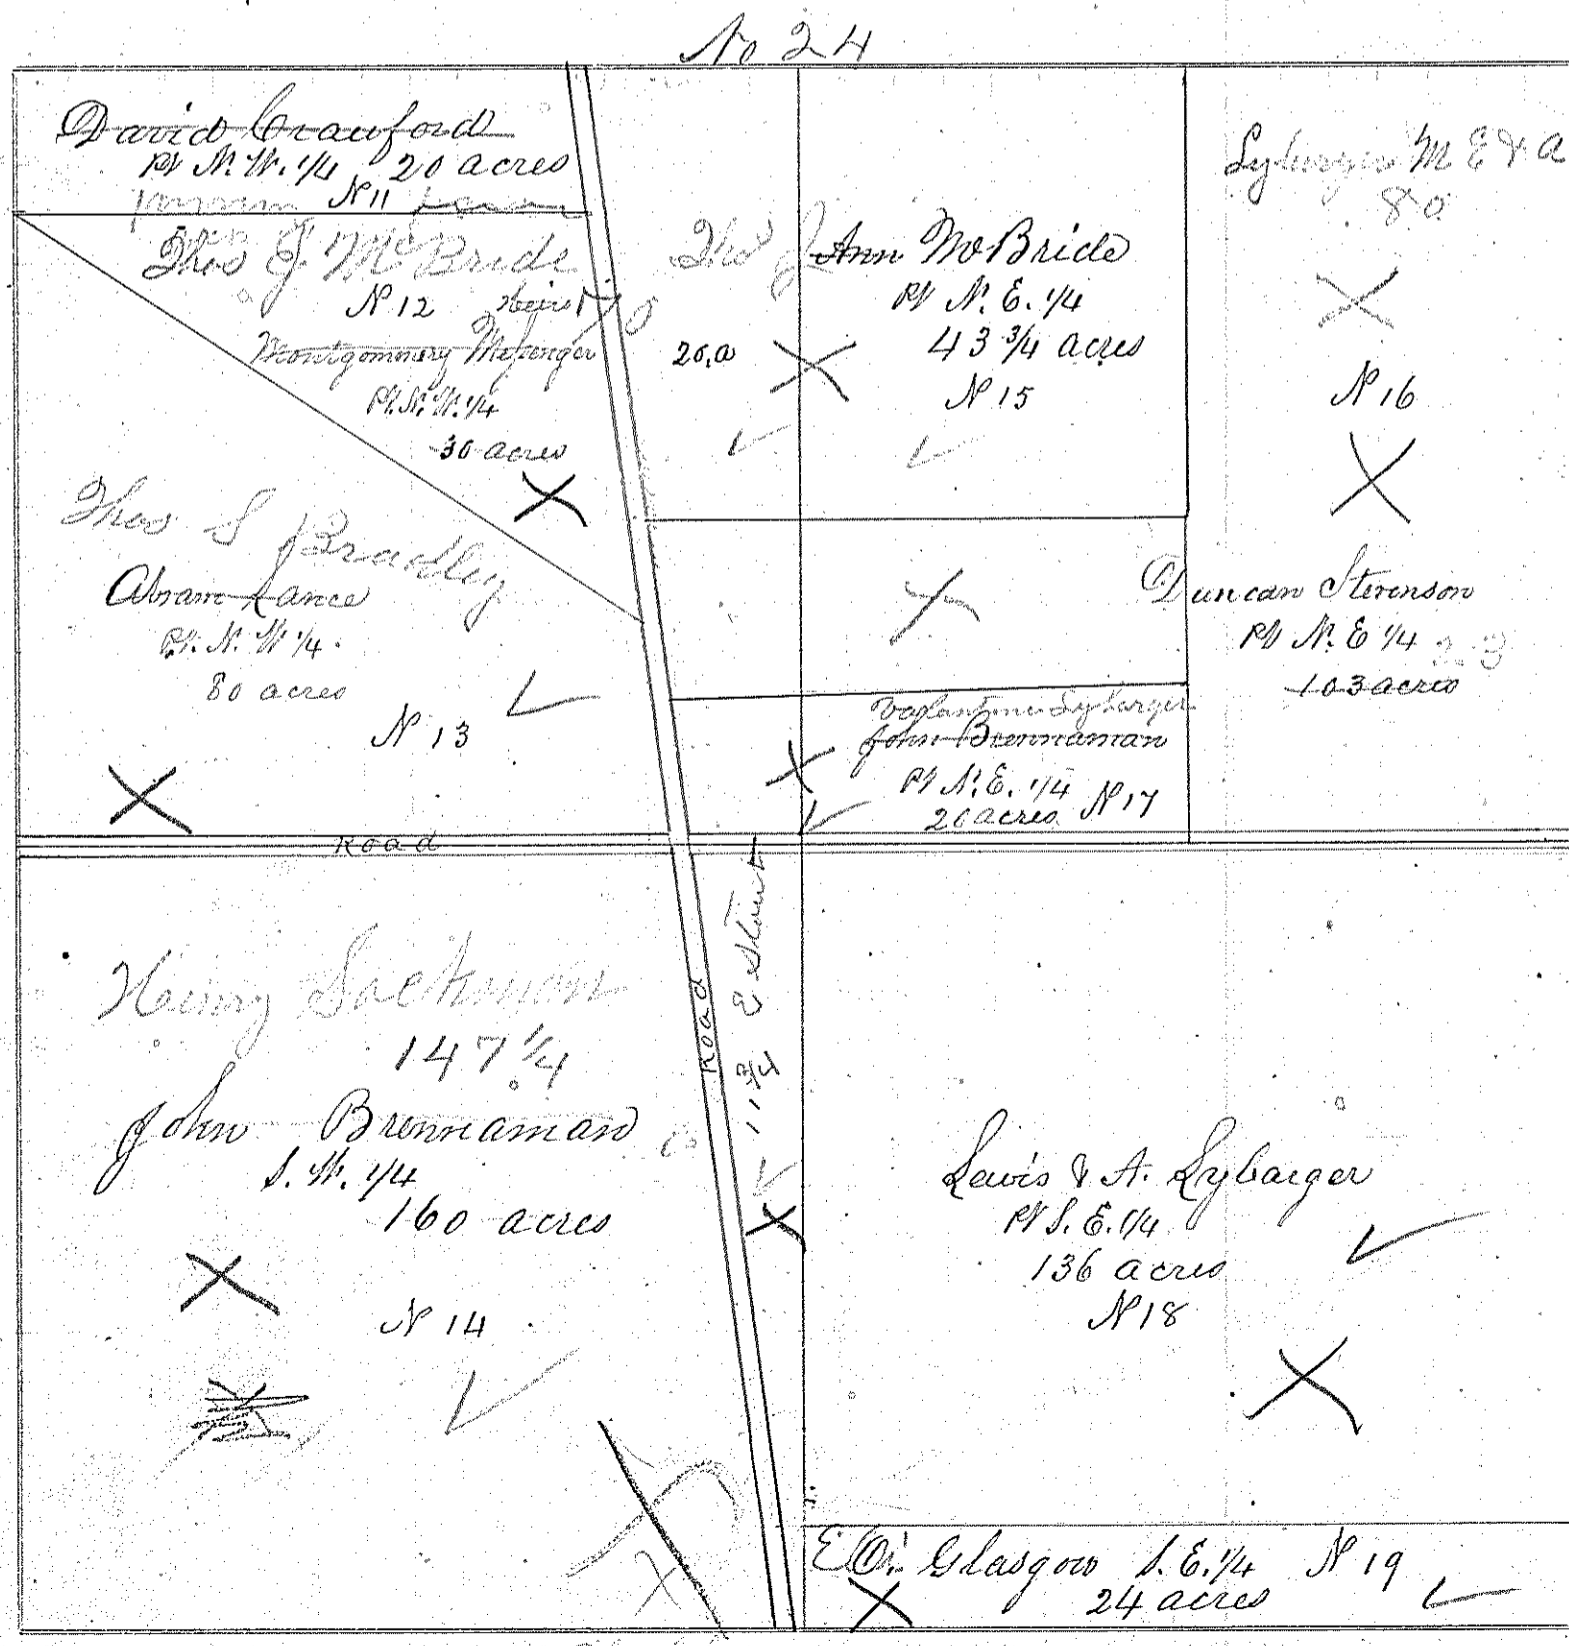 No 24
David Crawford
Pt N. W. 1/4 20 acres
N 11
Thos J. McBride
N 12 heirs
Montgommery Messenger
Pt. N. W. 1/4
30 acres
70
Thos S Bradley
Abram Lance
Pt. N. W 1/4.
80 acres
N 13
Thos J
20,a
Ann McBride
Pt N. E. 1/4
43 3/4 acres
N 15
Lybarger M E & A
80
N 16
Duncan Stevenson
Pt N. E 1/4 23
103 acres
Valantine Lybarger
John Brennaman
Pt N. E. 1/4 N 17
20 acres
Road
Henry Sackman
147 1/4
John Brennaman
S. W. 1/4
160 acres
N 14
Road
11 3/4 E Stout
Lewis & A. Lybarger
Pt S. E. 1/4
136 acres
N 18
E. O. Glasgow S. E. 1/4 N 19
24 acres